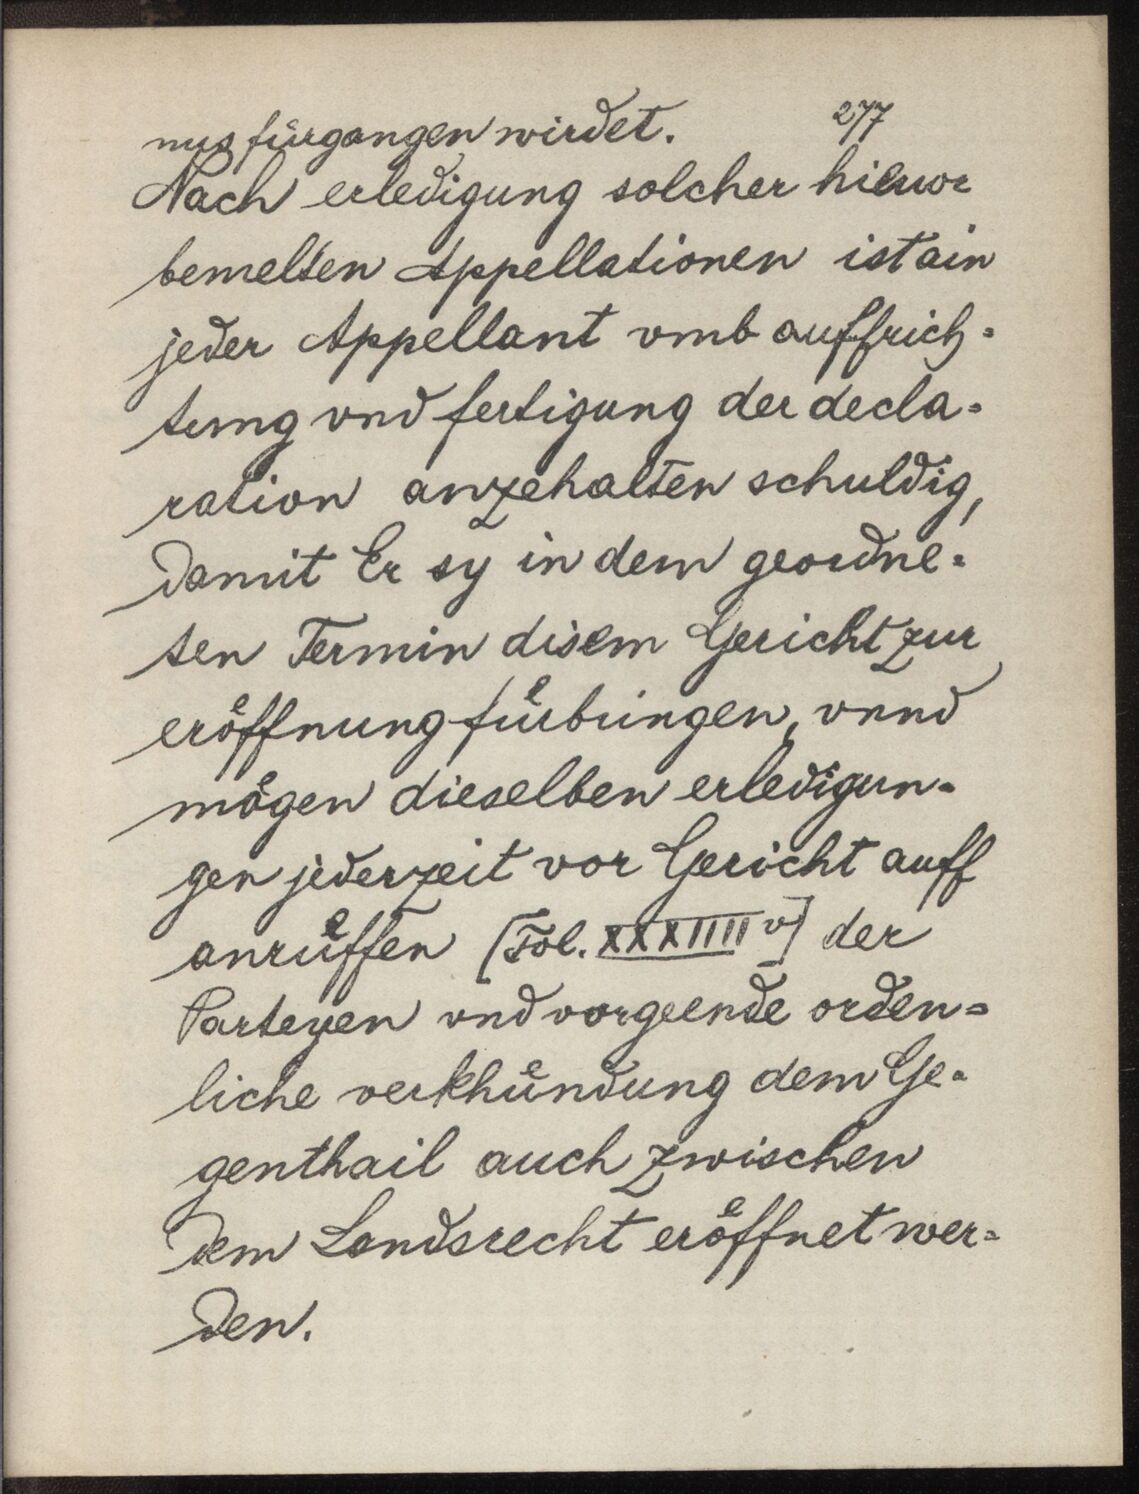 277
nus fürgangen wirdet.
Nach erledigung solcher hieuor
bemelten Appellationen ist ain
jeder Appellant vmb auffrich=
tung vnd fertigung der decla=
ration anzehalten schuldig,
damit Er sy in dem geordne=
ten Termin disem Gericht zur
eröffnung fürbringen, vnnd
mögen dieselben erledigun=
gen jederzeit vor Gericht auff
anrüffen [Fol. XXXIIII v] der
Parteyen vnd vorgeende orden=
liche verkhündung dem Ge=
genthail auch zwischen
dem Landsrecht eröffnet wer=
den.